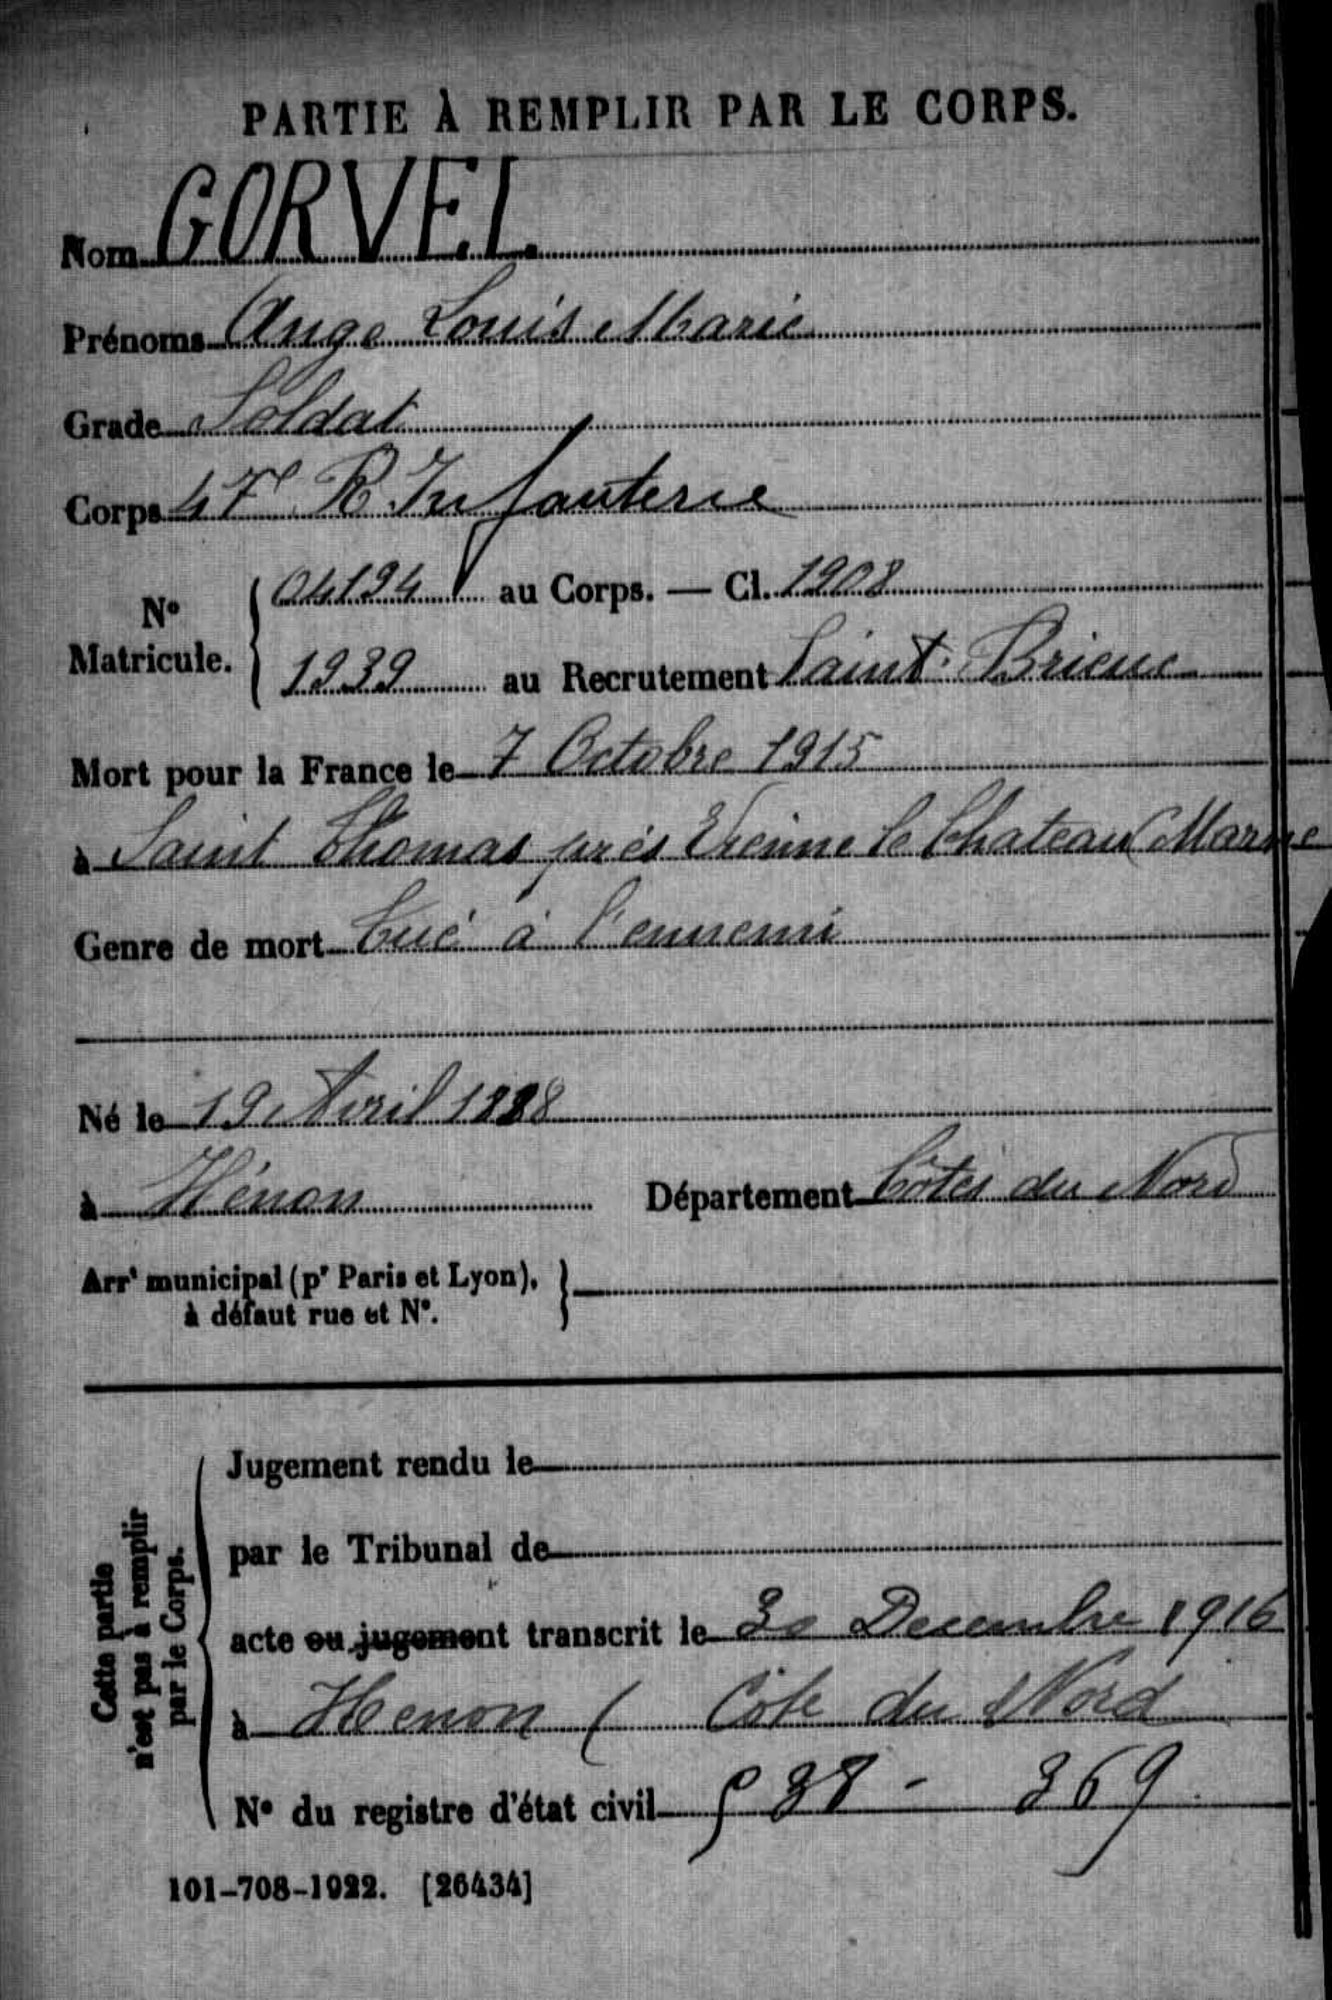 PARTIE À REMPLIR PAR LE CORPS.
Nom GORVEL
Prénoms Ange Louis Marie
Grade Soldat
Corps 47e R. Infanterie
No Matricule. { 04194 au Corps. — Cl. 1908
1939 au Recrutement Saint-Brieuc
Mort pour la France le 7 Octobre 1915
à Saint Thomas près Vienne le Chateau (Marne
Genre de mort Tué à l'ennemi
Né le 19 Avril 1888
à Hénon Département Côtes du Nord
Arrt municipal (pr Paris et Lyon), }
à défaut rue et No.
Cette partie
n'est pas à remplir
par le Corps.
Jugement rendu le
par le Tribunal de
acte ou jugement transcrit le 30 Decembre 1916
à Henon ( Côte du Nord
No du registre d'état civil 38 - 369
101-708-1922. [26434]